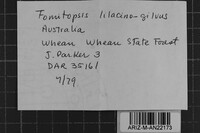 Fomitopsis lilacino-gilvus
Australia
Whean Whean State Forest
J. Parker 3
DAR 35161
7/79
ARIZ-M-AN22173